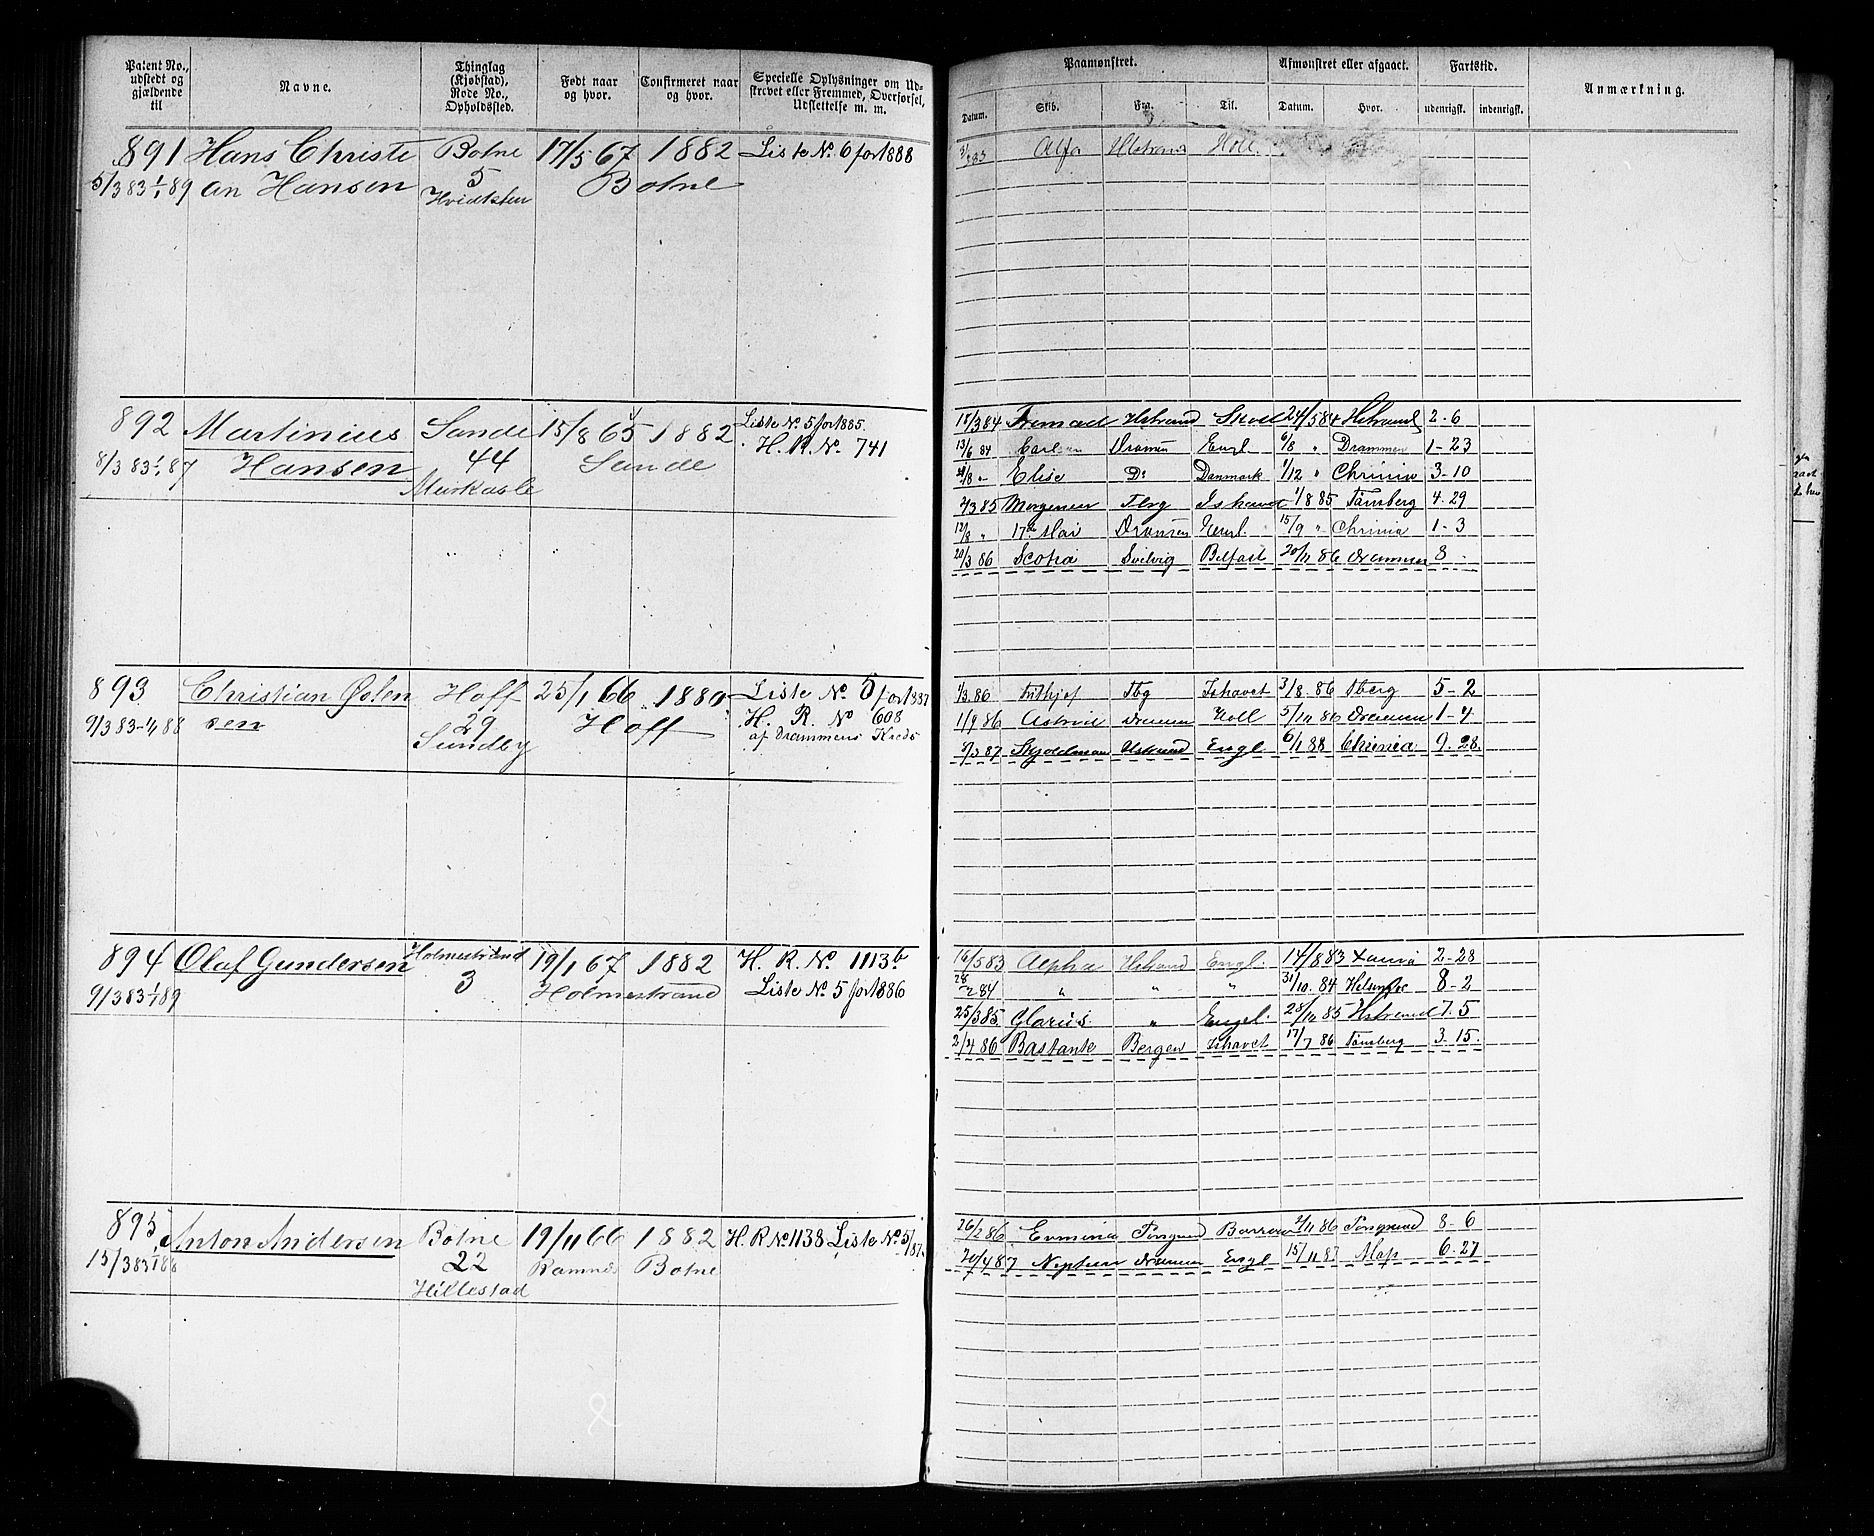 Patent No., udstedt og gjældende til
Navne.
Thinglag (Kjøbstad), Rode No., Opholdssted.
Født naar og hvor.
Confirmeret naar og hvor.
Specielle Oplysninger om Udskrevet eller Fremmed, Overførsel, Udslettelse m. m.
Paamønstret.
Afmønstret eller afgaaet.
Fartstid.
Anmærkning.
Datum. Skib. Fra. Til. Datum. Hvor. udenrigsk. indenrigsk.
891 Hans Christi Botne 17/5 67 1882 Liste No. 6 for 1888
5/3 83 1/1 89 an Hansen 5 Botne
Hvidsten
Alfa Hstrand Holl.
892 Martinius Sande 15/8 65 1882 Liste No. 5 for 1885.
8/3 83 1/1 87 Hansen 44 Sande H. R. No. 741
Fremad Hstrand 24/5 84 Hstrand 2-6
13/6 84 Drammen Engl. 6/8 " Drammen 1-23
Elise Do Danmark 1/12 " Chrinia 3-10
Morgenen Tbrg Ishavet 1/8 85 Tønsberg 4-29
12/8 " 17de Mai Drammen 15/9 " Chrinia 1-3
20/3 86 Scotia Svelvig Belfast 20/11 86 Drammen 8 -
893 Christian Hoff 25/1 66 1880 Liste No. 5 for 1887
9/3 83-1/1 88 sen 29 Hoff H. R. No 608
Sundby af Drammens Kreds
1/3 86 Frithjof Tbg Ishavet 3/8 86 Tberg 5-2
1/9 86 Drammen Holl 5/11 86 Drammen
Skjoldmøen Hstrand Engl. 6/1 88 Chrinia 9-28
894 Olaf Gundersen Holmestrand 19/1 67 1882 H. R. No. 1113 b
9/3 83 1/1 89 3 Holmestrand Liste No. 5 for 1886
16/5 83 Alpha Hstrand Engl. 14/8 83 2-28
28/2 84 " " " 31/10 84 8-2
25/3 85 Glarus " Engl. 28/10 85 Hstrand 7-5
2/4 86 Bastante Bergen Ishavet 17/7 86 Tønsberg 3-15
895 Anton Andersen Botne 19/11 66 1882 H. R No 1138 Liste No. 5/87
15/3 83 1/1 88 22 Ramnes Botne
Hillestad
26/2 86 Erminia Porsgrund Barrow 2/11 86 Porsgrund 8-6
20/4 87 Neptun Drammen Engl 15/11 87 6-27